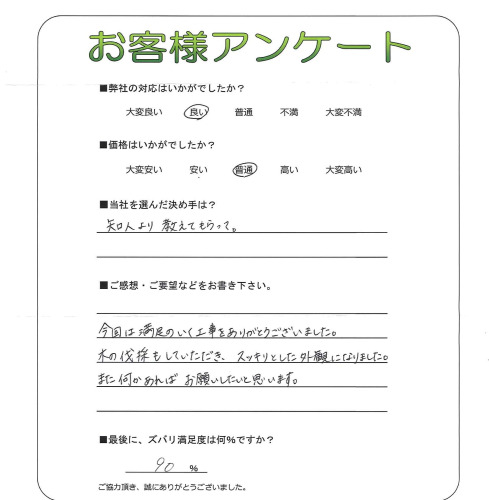 お客様アンケート
■弊社の対応はいかがでしたか？
大変良い 良い 普通 不満 大変不満
■価格はいかがでしたか？
大変安い 安い 普通 高い 大変高い
■当社を選んだ決め手は？
知人より教えてもらって。
■ご感想・ご要望などをお書き下さい。
今回は満足のいく工事をありがとうございました。
木の伐採もしていただき、スッキリとした外観になりました。
また何かあればお願いしたいと思います。
■最後に、ズバリ満足度は何％ですか？
90 ％
ご協力頂き、誠にありがとうございました。